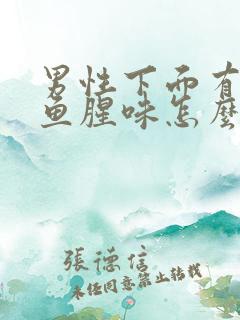 男性下面有
鱼腥味怎麽
張德信
未经同意禁止转载